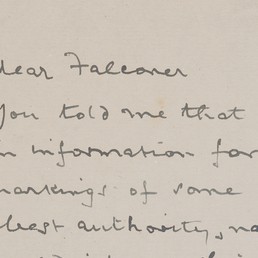 dear Falconer
you told me that
in information for
markings of some
best authority, na